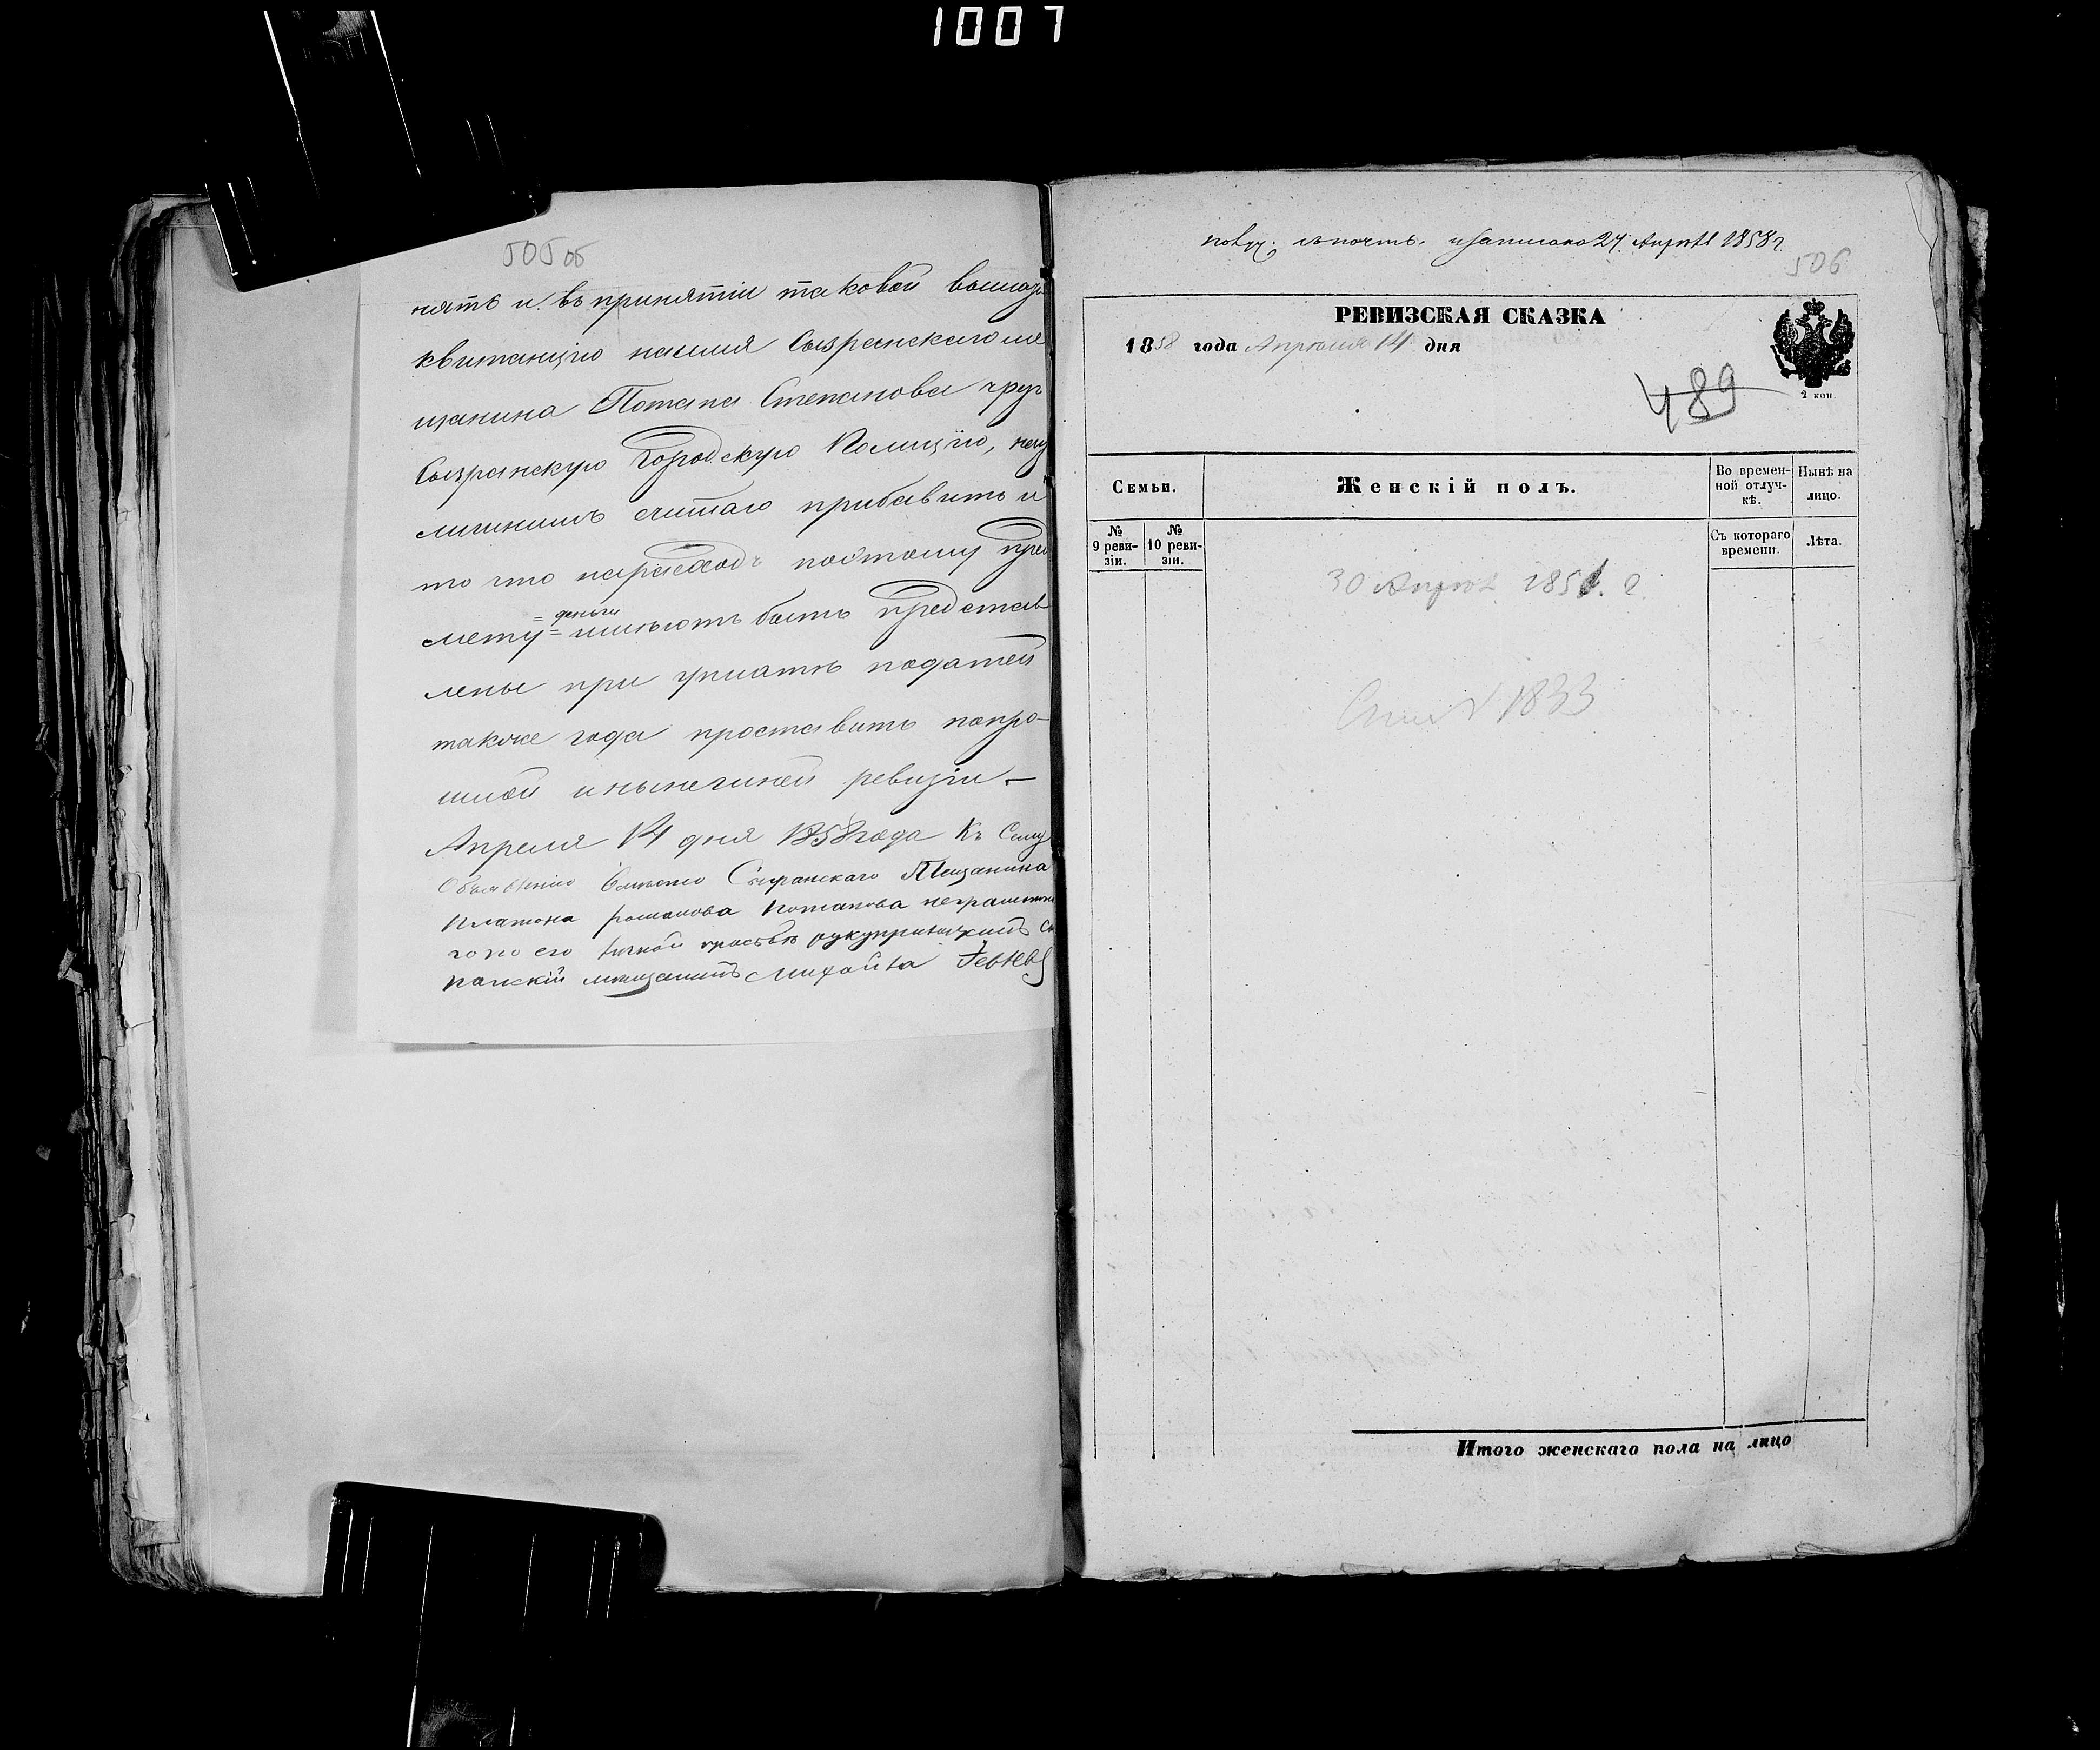 1007
505 об
нять и въ принятіи таковой выдать
квитанцію насимя Сызранскаго ме
щанина Потапа Степанова чрез
Сызранскую Городскую Полицію,
лишнимъ считаю прибавить и
то что нарасход поэтому пред
=деньги
мету= имеютъ быть представ
лены при уплатѣ податей
также года проставить попро-
шлой инынешней ревизіи —
Апреля 14 дня 1858 года Къ Сему
Объявленію Сызранскаго Мещанина
Платона романова Потапова неграмотна
го по его личной прозьбе рукуприложилъ
мещанинъ Михайла
и записано 24. Апреля 1858 г.
506
РЕВИЗСКАЯ СКАЗКА
1858 года Апреля 14 дня
489
2 коп
Семьи.
Женскій полъ.
Во времен-
ной отлуч-
кѣ.
Нынѣ на
лицо.
№
9 реви-
зіи.
№
10 реви-
зіи.
Съ котораго
времени.
Лѣта.
30 Апрел 1851. г.
1833
Итого женскаго пола на лицо